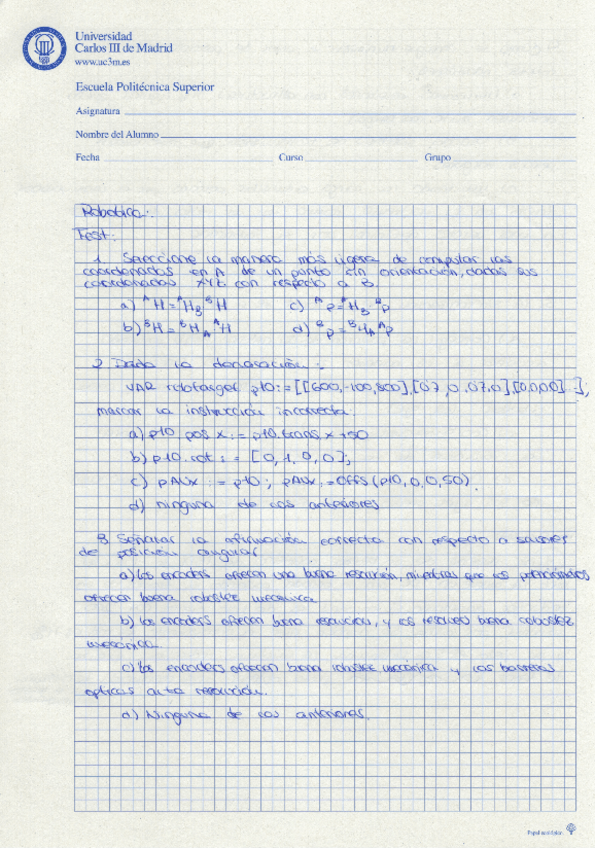 Universidad
Carlos III de Madrid
www.uc3m.es
Escuela Politécnica Superior
Asignatura
Nombre del Alumno
Fecha Curso Grupo
Robotica:
Test:
1. Seleccione la manera más ligera de computar las
coordenadas en A de un punto sin orientación, dadas sus
coordenadas XYZ con respecto a B.
a) ᴬH = ᴬH_B ᴮH c) ᴬp = ᴬH_B ᴮp
b) ᴮH = ᴮH_A ᴬH d) ᴮp = ᴮH_A ᴬp
2 Dada la declaración:
VAR robtarget p10:=[[600,-100,800],[0.7,0,0.7,0],[0,0,0,0]...];
marcar la instrucción incorrecta.
a) p10 pos x := p10.trans.x +50
b) p10.rot := [0,1,0,0];
c) pAux := p10; pAux:=Offs(p10,0,0,50).
d) ninguna de las anteriores
3 Señalar la afirmación correcta con respecto a sensores
de posición angular
a) los encoders ofrecen una buena resolución, mientras que los potenciómetros
ofrecen buena robustez mecánica
b) los encoders ofrecen buena resolución, y los resolvers buena robustez
mecánica.
c) los encoders ofrecen buena robustez mecánica y las barreras
opticas alta resolución.
d) Ninguna de las anteriores.